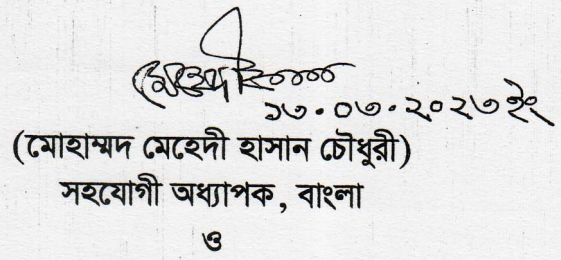 ১৩.০৩.২০২৩ ইং
(মোহাম্মদ মেহেদী হাসান চৌধুরী)
সহযোগী অধ্যাপক, বাংলা
ও